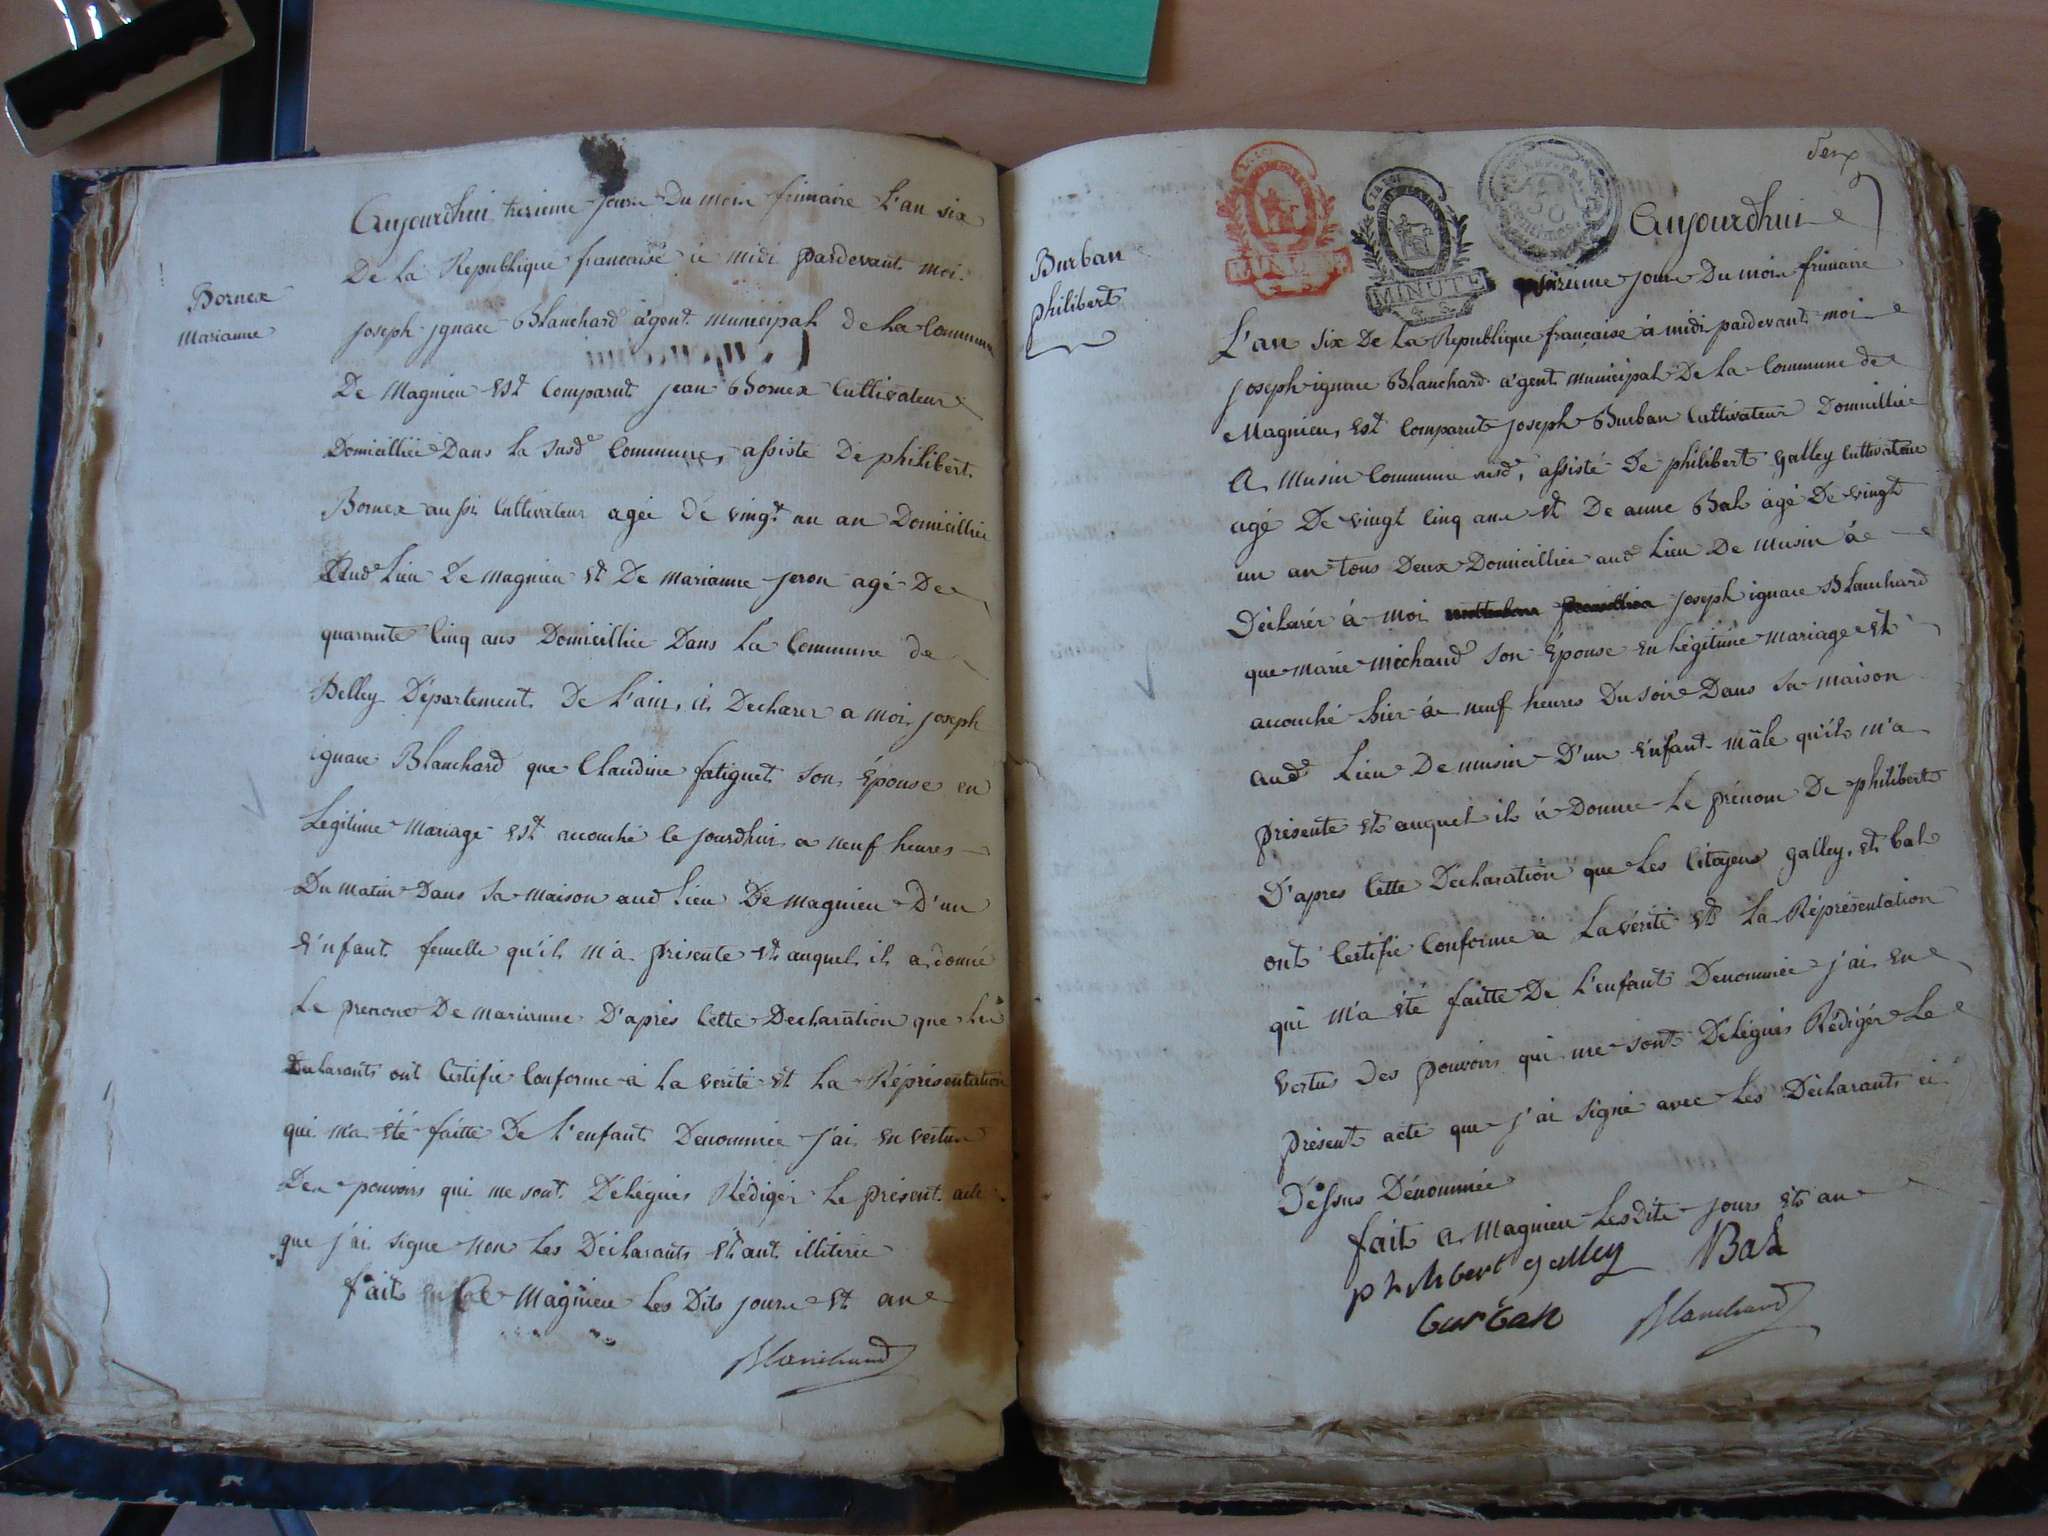 Bornex
Marianne
Aujourdhui treizieme jour Du mois frimaire L'an six
De La Republique francaise à midi pardevant moi
joseph ignace Blanchard agent municipal de La Commune
De Magnieu est Comparut jean Bornex Cultivateur
Domicillié Dans La susde Commune, assisté De philibert
Bornex aussi Cultivateur agée dé vingt un an Domicillié
Aude Lieu De magnieu et De marianne jeron agé De
quarante Cinq ans Domicilliée Dans La Commune de
Belley Département De L'ain, à Declarer a moi joseph
ignace Blanchard que Claudine fatiguet son Épouse en
Légitime mariage est acouché le jourdhui a neuf heures
Du matin Dans Sa maison aud Lieu De magnieu D'un
énfant femelle qu'il m'a présenté et auquel il a donné
Le prenom De marianne D'après Cette Declaration que Les
Declarants ont Certifié Conforme à La verité et La Répresentation
qui m'a été faitte De L'enfant Denommée j'ai en vertu
Des pouvoirs qui me sont Délégués Rédigér Le présent acte
que j'ai signé non Les Déclarants étant illiterée
fait Magnieu Les Dits jours et an
Blanchard
Burban
philibert
MINUTE
Aujourdhui
jour Du mois frimaire
L'an six De La Republique française à midi pardevant moi
joseph ignace Blanchard agent municipal De La Commune de
Magnieu, est Comparut joseph Burban Cultivateur Domicillié
A Musin Commune susde, assisté De philibert galley Cultivateur
agé De vingt Cinq ans et De anne Bal agé De vingt
un an tous Deux Domicilliée aude Lieu De musin à
Déclarér à moi joseph ignace Blanchard
que marie michaud son Épouse en Légitime mariage est
acouché hier à neuf heures Du soir Dans Sa maison
aude Lieu De musin D'un énfant mâle qu'il m'a
présenté et auquel il à Donnée Le prénom De philibert
D'apres Cette Déclaration que Les Citoyens galley, et bal
ont Certifié Conforme à La vérité et La Réprésentation
qui m'a été faitte De L'enfant Denommée j'ai en
vertus Des pouvoirs qui me sont Délégués Rédigér Le
présent acte que j'ai signé avec Les Déclarants ci
Dessus Dénommée
fait a Magnieu Lesdits jours et an
philibert galley Bal
burban Blanchard